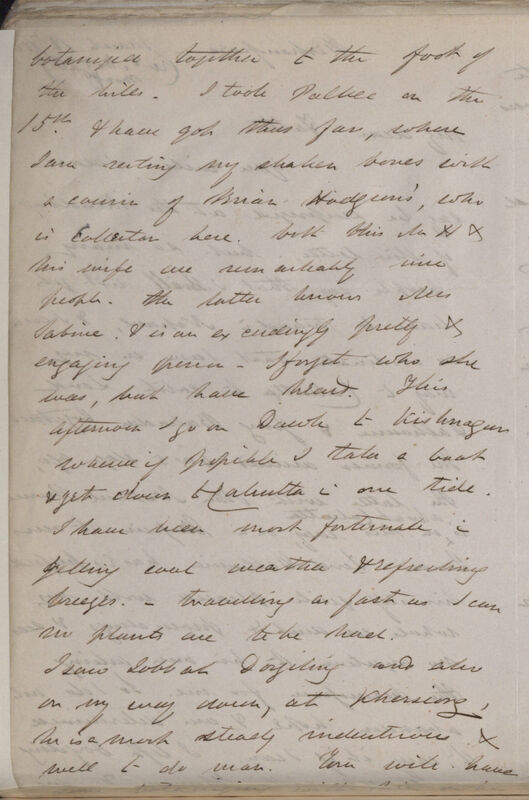 botanized together to the foot of
the hills. I took Palkee on the
15th & have got thus far, where
I am resting my shaken bones with
a cousin of Brian Hodgson's, who
is collector here. both this Mr H &
his wife are remarkably nice
people. the latter knows Mrs
Sabine. & is an exceedingly pretty &
engaging person - I forget who she
was, but have heard. This
afternoon I go on Dawk to Kishnagur
whence if possible I take a boat
& get down to Calcutta in one tide.
I have been most fortunate in
getting cool weather & refreshing
breezes. - travelling as fast as I can
no plants are to be had.
I saw Lobb at Dorjiling and also
on my way down, at Khersiong,
he is a most steady industrious &
well to do man. You will have